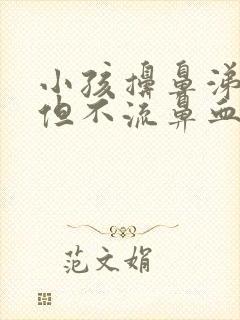 小孩擤鼻涕
但不流鼻血
范文娟